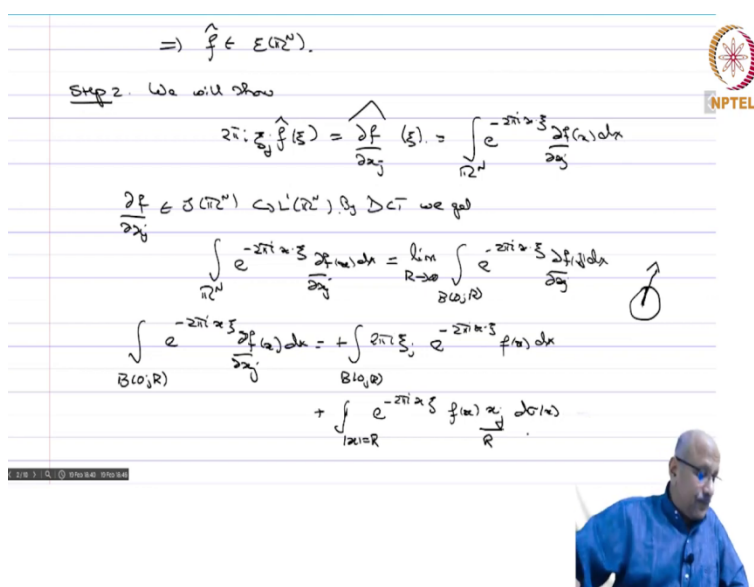 ⇒ f̂ ∈ ε(ℝᴺ).
Step 2. We will show
2πi ξ_j f̂(ξ) = \widehat{∂f/∂x_j} (ξ). = ∫_{ℝᴺ} e^{-2πi x·ξ} ∂f/∂x_j (x) dx
NPTEL
∂f/∂x_j ∈ S(ℝᴺ) ↪ L¹(ℝᴺ). By DCT we get
∫_{ℝᴺ} e^{-2πi x·ξ} ∂f/∂x_j (x) dx = lim_{R→∞} ∫_{B(0;R)} e^{-2πi x·ξ} ∂f/∂x_j (x) dx
∫_{B(0;R)} e^{-2πi x·ξ} ∂f/∂x_j (x) dx = + ∫_{B(0;R)} 2πi ξ_j e^{-2πi x·ξ} f(x) dx
+ ∫_{|x|=R} e^{-2πi x·ξ} f(x) x_j/R dσ(x).